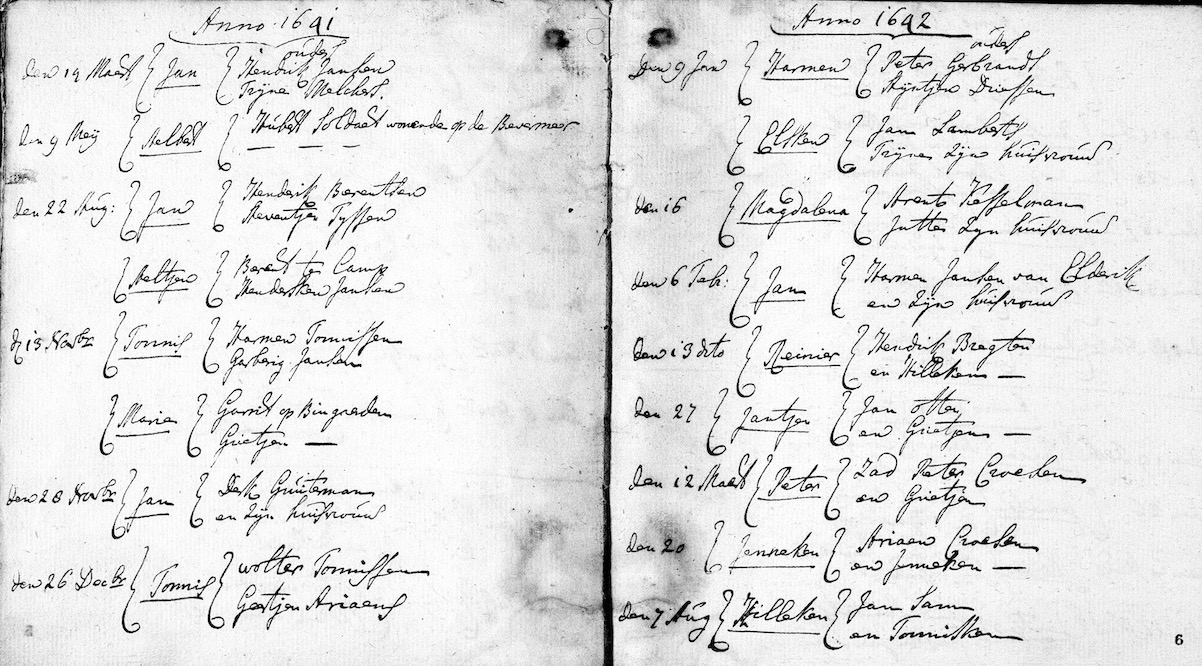 Anno 1641
ouders
Den 19 Maert Jan Hendrik Jansen
Trijne Melchers.
Den 9 Meij Aelbert Hubert Soldaet wonende op de Bevermeer
Den 22 Aug: Jan Hendrik Berentsen
Aeventjen Tyssen
Aeltjen Berent te Camp
Hendersken Jansen
13 Novbr Tonnis Harmen Tonnissen
Gerberig Jansen
Maria Garrit op Bingerden
Grietjen —
Den 28 Novbr Jan Derk Gunterman
en zijn huisvrouw
Den 26 Decbr Tonnis Wolter Tonnissen
Geertjen Ariaens
Anno 1642
ouders
Den 9 Jan Harmen Peter Gerbrandts
Stijntjen Driessen
Elsken Jan Lamberts
Trijnes zijn huisvrouw
Den 16 Magdalena Arent Kesselman
Jutte zijn huisvrouw
Den 6 Feb: Jan Harmen Jansen van Elderik
en zijn huisvrouw
Den 13 dito Reinier Hendrik Bregten
en Hilleken —
Den 27 Jantjen Jan Otten
en Grietjen —
Den 12 Maert Peter Peter Croesen
en Grietjen
Den 20 Jenneken Ariaen Croesen
en Jenneken —
Den 7 Aug Hilleken Jan Sam
en Tonnisken
6